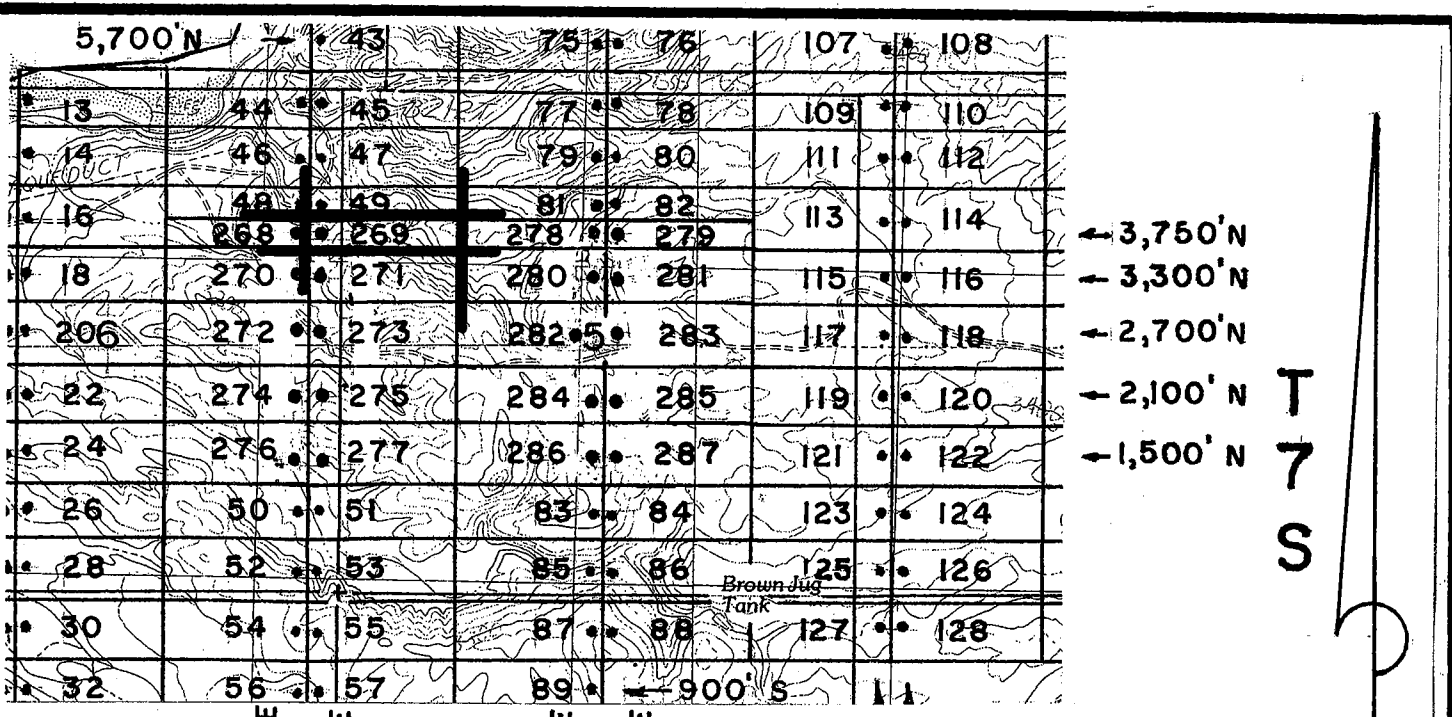 5,700'N 43 75 76 107 108
13 44 45 77 78 109 110
14 46 47 79 80 111 112
16 48 49 81 82 113 114
268 269 278 279 ←3,750'N
18 270 271 280 281 115 116 ←3,300'N
206 272 273 282 5 283 117 118 ←2,700'N
22 274 275 284 285 119 120 ←2,100'N
24 276 277 286 287 121 122 ←1,500'N
26 50 51 83 84 123 124
28 52 53 85 86 125 126
Brown Jug
Tank
30 54 55 87 88 127 128
32 56 57 89 ←900'S
T
7
S